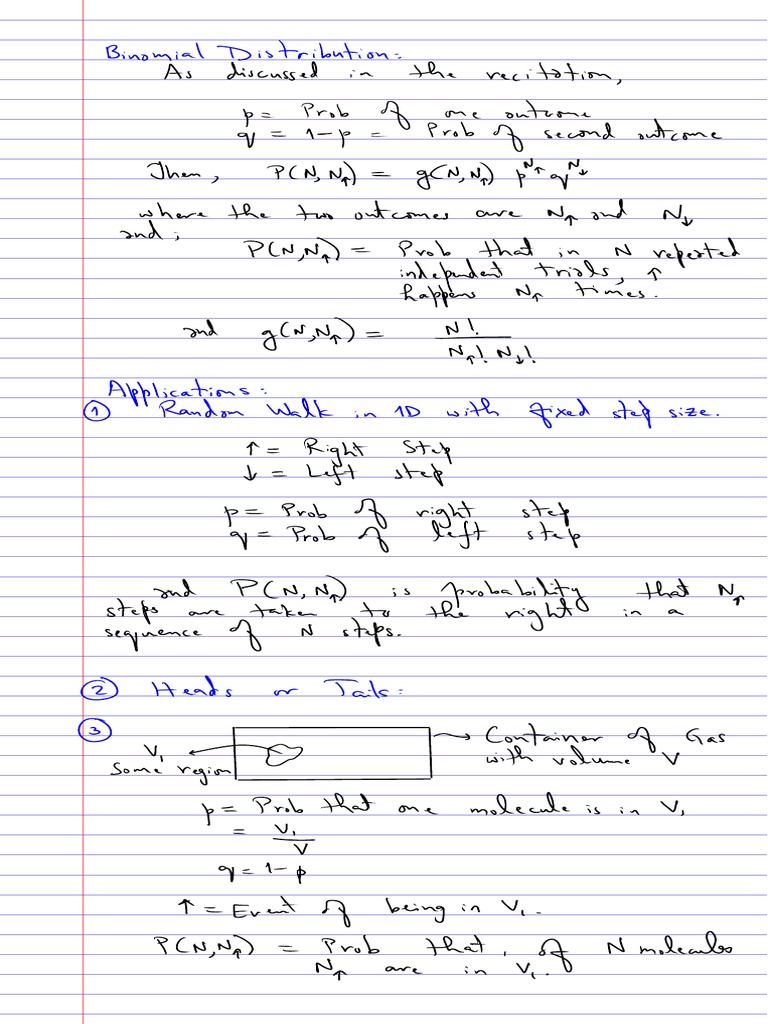 Binomial Distribution:
As discussed in the recitation,
p = Prob of one outcome
q = 1-p = Prob of second outcome
Then, P(N,N↑) = g(N,N↑) p^N↑ q^N↓
where the two outcomes are N↑ and N↓
and;
P(N,N↑) = Prob that in N repeated
independent trials, ↑
happens N↑ times.
and g(N,N↑) = N! / N↑! N↓!
Applications:
① Random Walk in 1D with fixed step size.
↑ = Right Step
↓ = Left step
p = Prob of right step
q = Prob of left step
and P(N,N↑) is probability that N↑
steps are taken to the right in a
sequence of N steps.
② Heads or Tails:
③
→ Container of Gas
with volume V
V₁
Some region
p = Prob that one molecule is in V₁
= V₁ / V
q = 1-p
↑ = Event of being in V₁.
P(N,N↑) = Prob that, of N molecules
N↑ are in V₁.